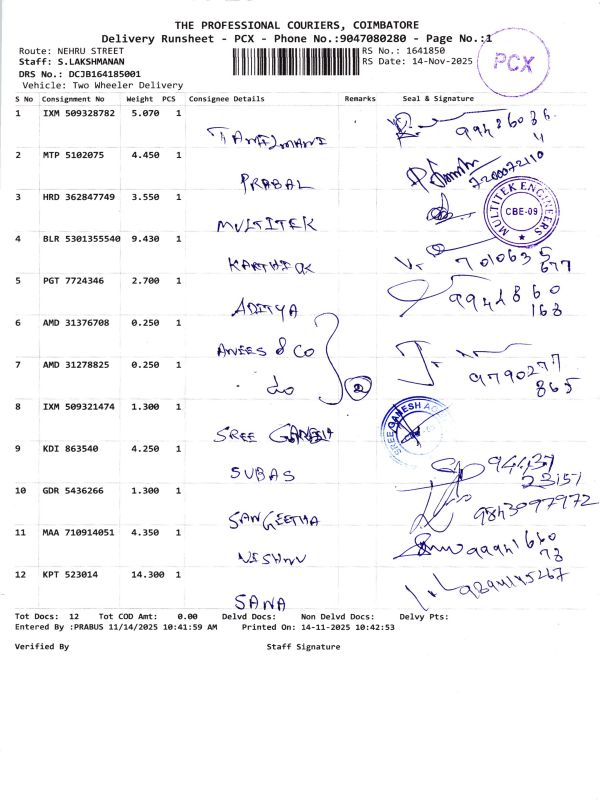 THE PROFESSIONAL COURIERS, COIMBATORE
Delivery Runsheet - PCX - Phone No.:9047080280 - Page No.:1
Route: NEHRU STREET
RS No.: 1641850
Staff: S.LAKSHMANAN
RS Date: 14-Nov-2025
PCX
DRS No.: DCJB164185001
Vehicle: Two Wheeler Delivery
S No Consignment No Weight PCS Consignee Details Remarks Seal & Signature
1 IXM 509328782 5.070 1
2 MTP 5102075 4.450 1
PRABAL 7200072110
3 HRD 362847749 3.550 1
MULTITEK
MULTITEK ENGINEERS CBE-09
4 BLR 5301355540 9.430 1
KARTHICK 7010635
677
5 PGT 7724346 2.700 1
ADITYA 9944860
168
6 AMD 31376708 0.250 1
ANEES & CO
7 AMD 31278825 0.250 1
do 2 9790277
865
8 IXM 509321474 1.300 1
SREE GANESH
SREE GANESH
9 KDI 863540 4.250 1
SUBAS 94437
23151
10 GDR 5436266 1.300 1
SANGEETHA 9843097972
11 MAA 710914051 4.350 1
VISHNU 99941660
78
12 KPT 523014 14.300 1
SANA
Tot Docs: 12 Tot COD Amt: 0.00 Delvd Docs: Non Delvd Docs: Delvy Pts:
Entered By :PRABUS 11/14/2025 10:41:59 AM Printed On: 14-11-2025 10:42:53
Verified By Staff Signature